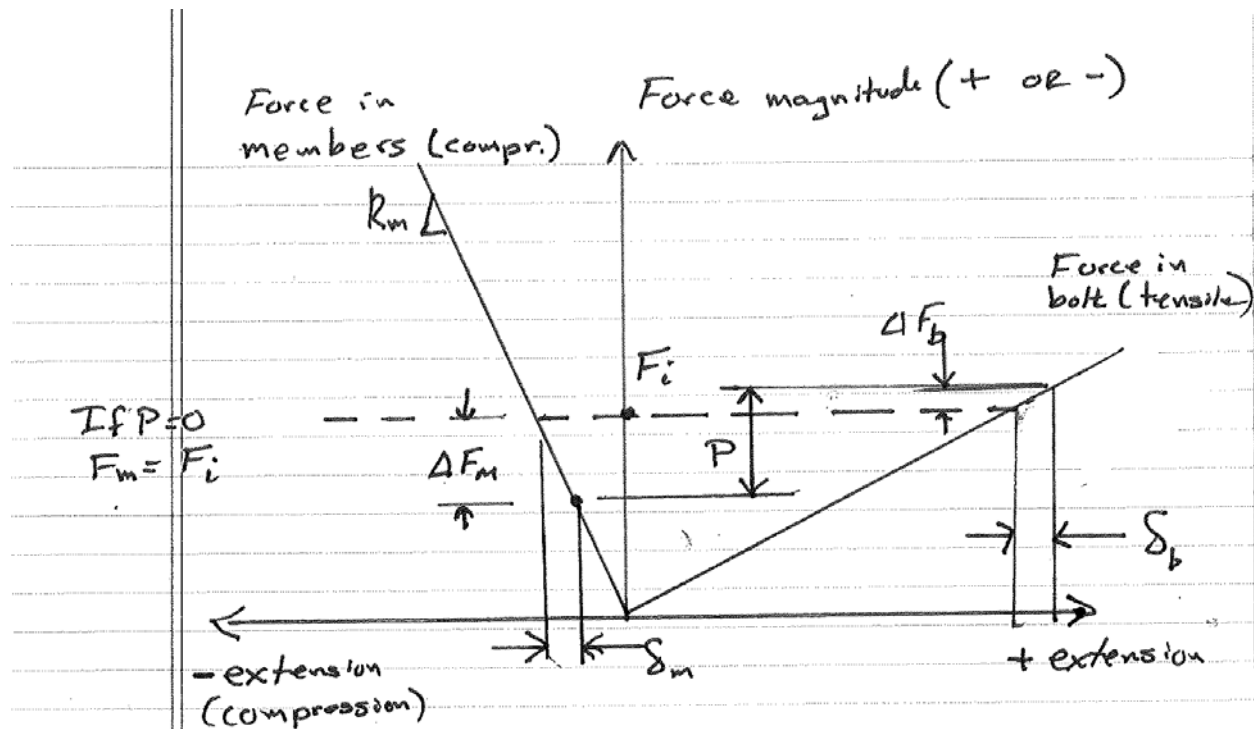 Force in
members (compr.)
Force magnitude (+ OR -)
km
Force in
bolt (tensile)
ΔF_b
F_i
If P=0
F_m = F_i
ΔF_m
P
δ_b
δ_m
- extension
(compression)
+ extension